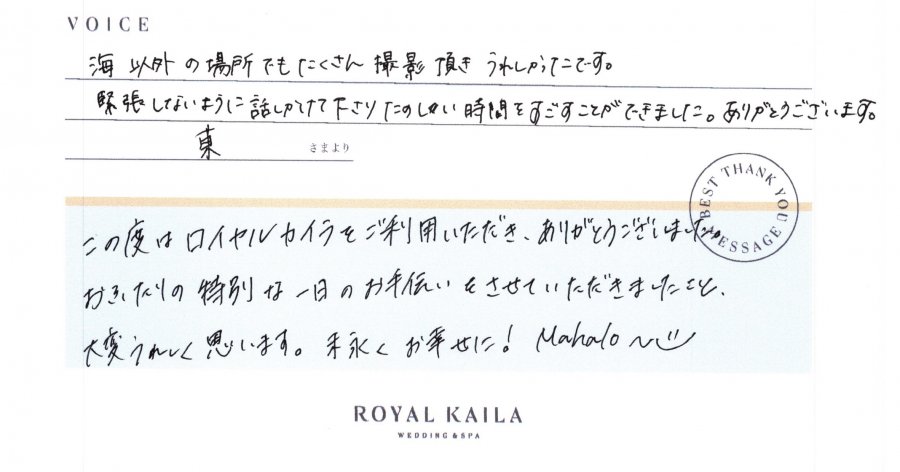 VOICE
海以外の場所でもたくさん撮影頂きうれしかったです。
緊張しないように話しかけて下さりたのしい時間をすごすことができました。ありがとうございます。
東 さまより
BEST THANK YOU MESSAGE
この度はロイヤルカイラをご利用いただき、ありがとうございました。
おふたりの特別な一日のお手伝いをさせていただきましたこと、
大変うれしく思います。末永くお幸せに! Mahalo~
ROYAL KAILA
WEDDING & SPA